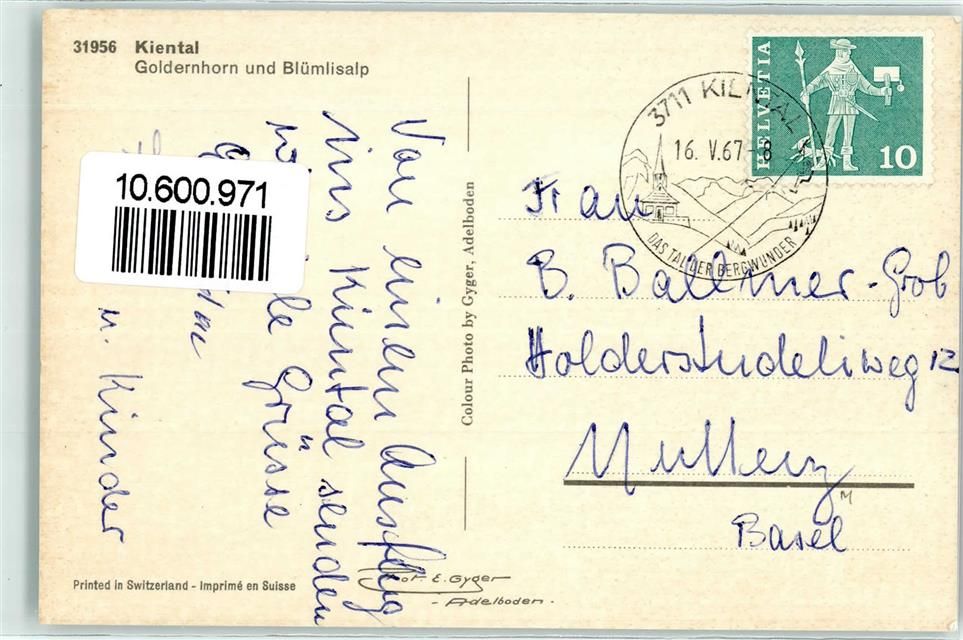 31956 Kiental
Goldernhorn und Blümlisalp
HELVETIA
10
3711 KIENTAL
16. V. 67 - 8
DAS TAL DER BERGWUNDER
10.600.971
Von einem Ausflug
ins Kiental senden
Grüsse
u. Kinder
Colour Photo by Gyger, Adelboden
Frau
B. Ballmer-Grob
Holderstudeliweg 12
Muttenz
Basel
Printed in Switzerland - Imprimé en Suisse
Phot. E. Gyger
- Adelboden.